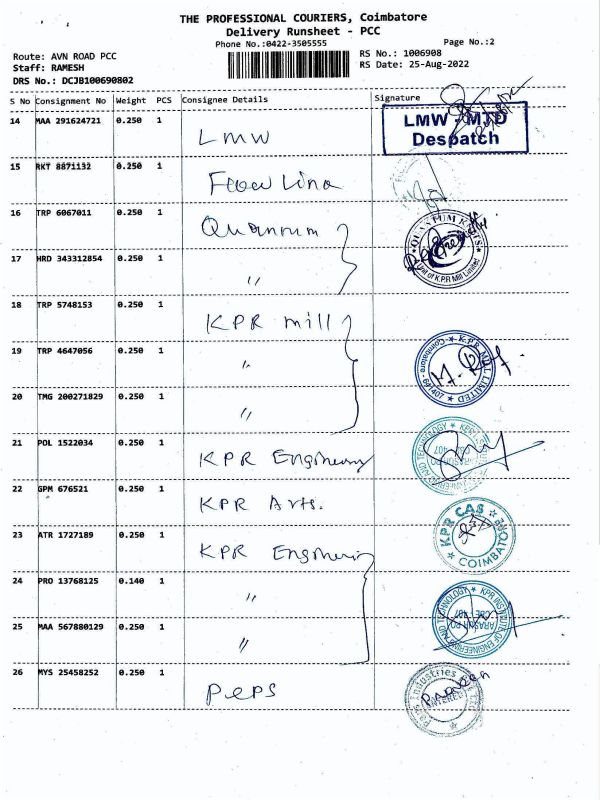 THE PROFESSIONAL COURIERS, Coimbatore
Delivery Runsheet - PCC
Phone No.:0422-3505555
Page No.:2
Route: AVN ROAD PCC
RS No.: 1006908
Staff: RAMESH
RS Date: 25-Aug-2022
DRS No.: DCJB100690802
S No Consignment No Weight PCS Consignee Details Signature
14 MAA 291624721 0.250 1 LMW
LMW - MTD
Despatch
15 RKT 8871132 0.250 1
16 TRP 6067011 0.250 1 Quantum
QUANTUM KNITS
Unit of K.P.R Mill Limited
17 HRD 343312854 0.250 1 "
18 TRP 5748153 0.250 1 KPR mill
19 TRP 4647056 0.250 1 "
K.P.R. MILL LIMITED
Coimbatore - 641407
20 TMG 200271829 0.250 1 "
21 POL 1522034 0.250 1 KPR Engineering
22 GPM 676521 0.250 1 KPR Arts.
KPR CAS
COIMBATORE
23 ATR 1727189 0.250 1 KPR Engineering
24 PRO 13768125 0.140 1 "
KPR INSTITUTE OF ENGINEERING AND TECHNOLOGY
25 MAA 567880129 0.250 1 "
26 MYS 25458252 0.250 1 Peps